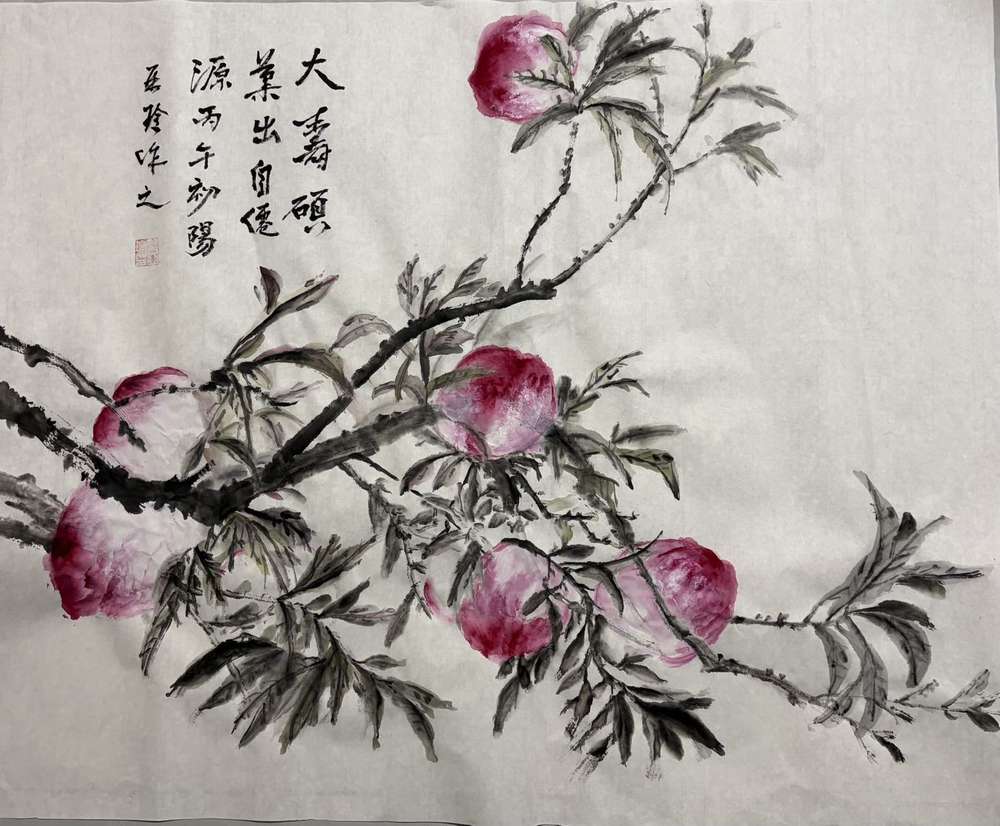 大壽碩
菓出自僊
源丙午初陽
玲作之